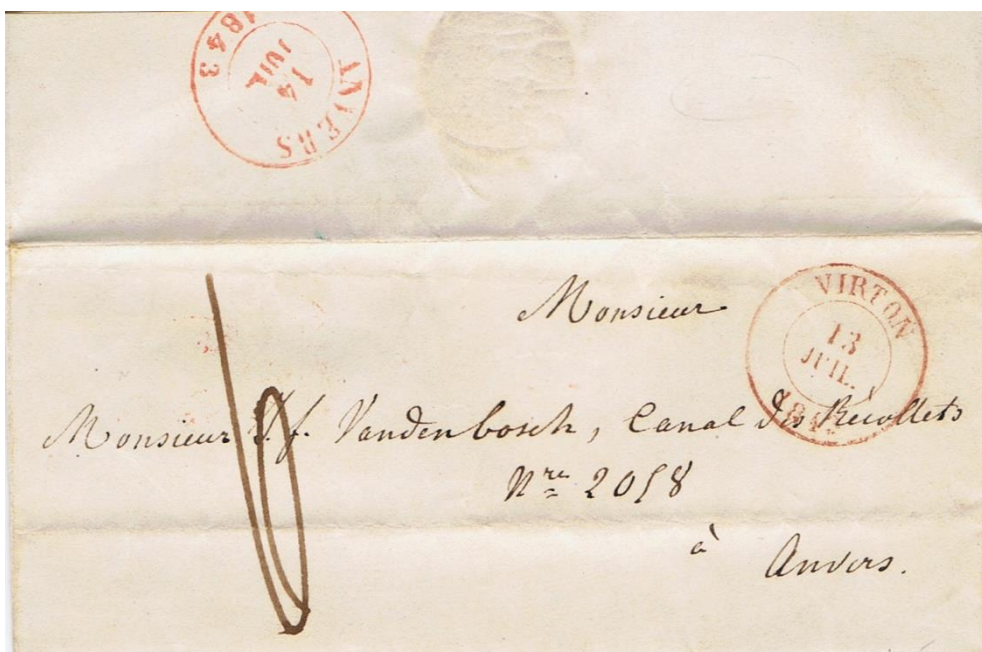 ANVERS
14
JUIL.
1843
Monsieur
VIRTON
13
JUIL.
Monsieur J. f. Vandenbosch, Canal des Récollets
Nre 2058
à Anvers.